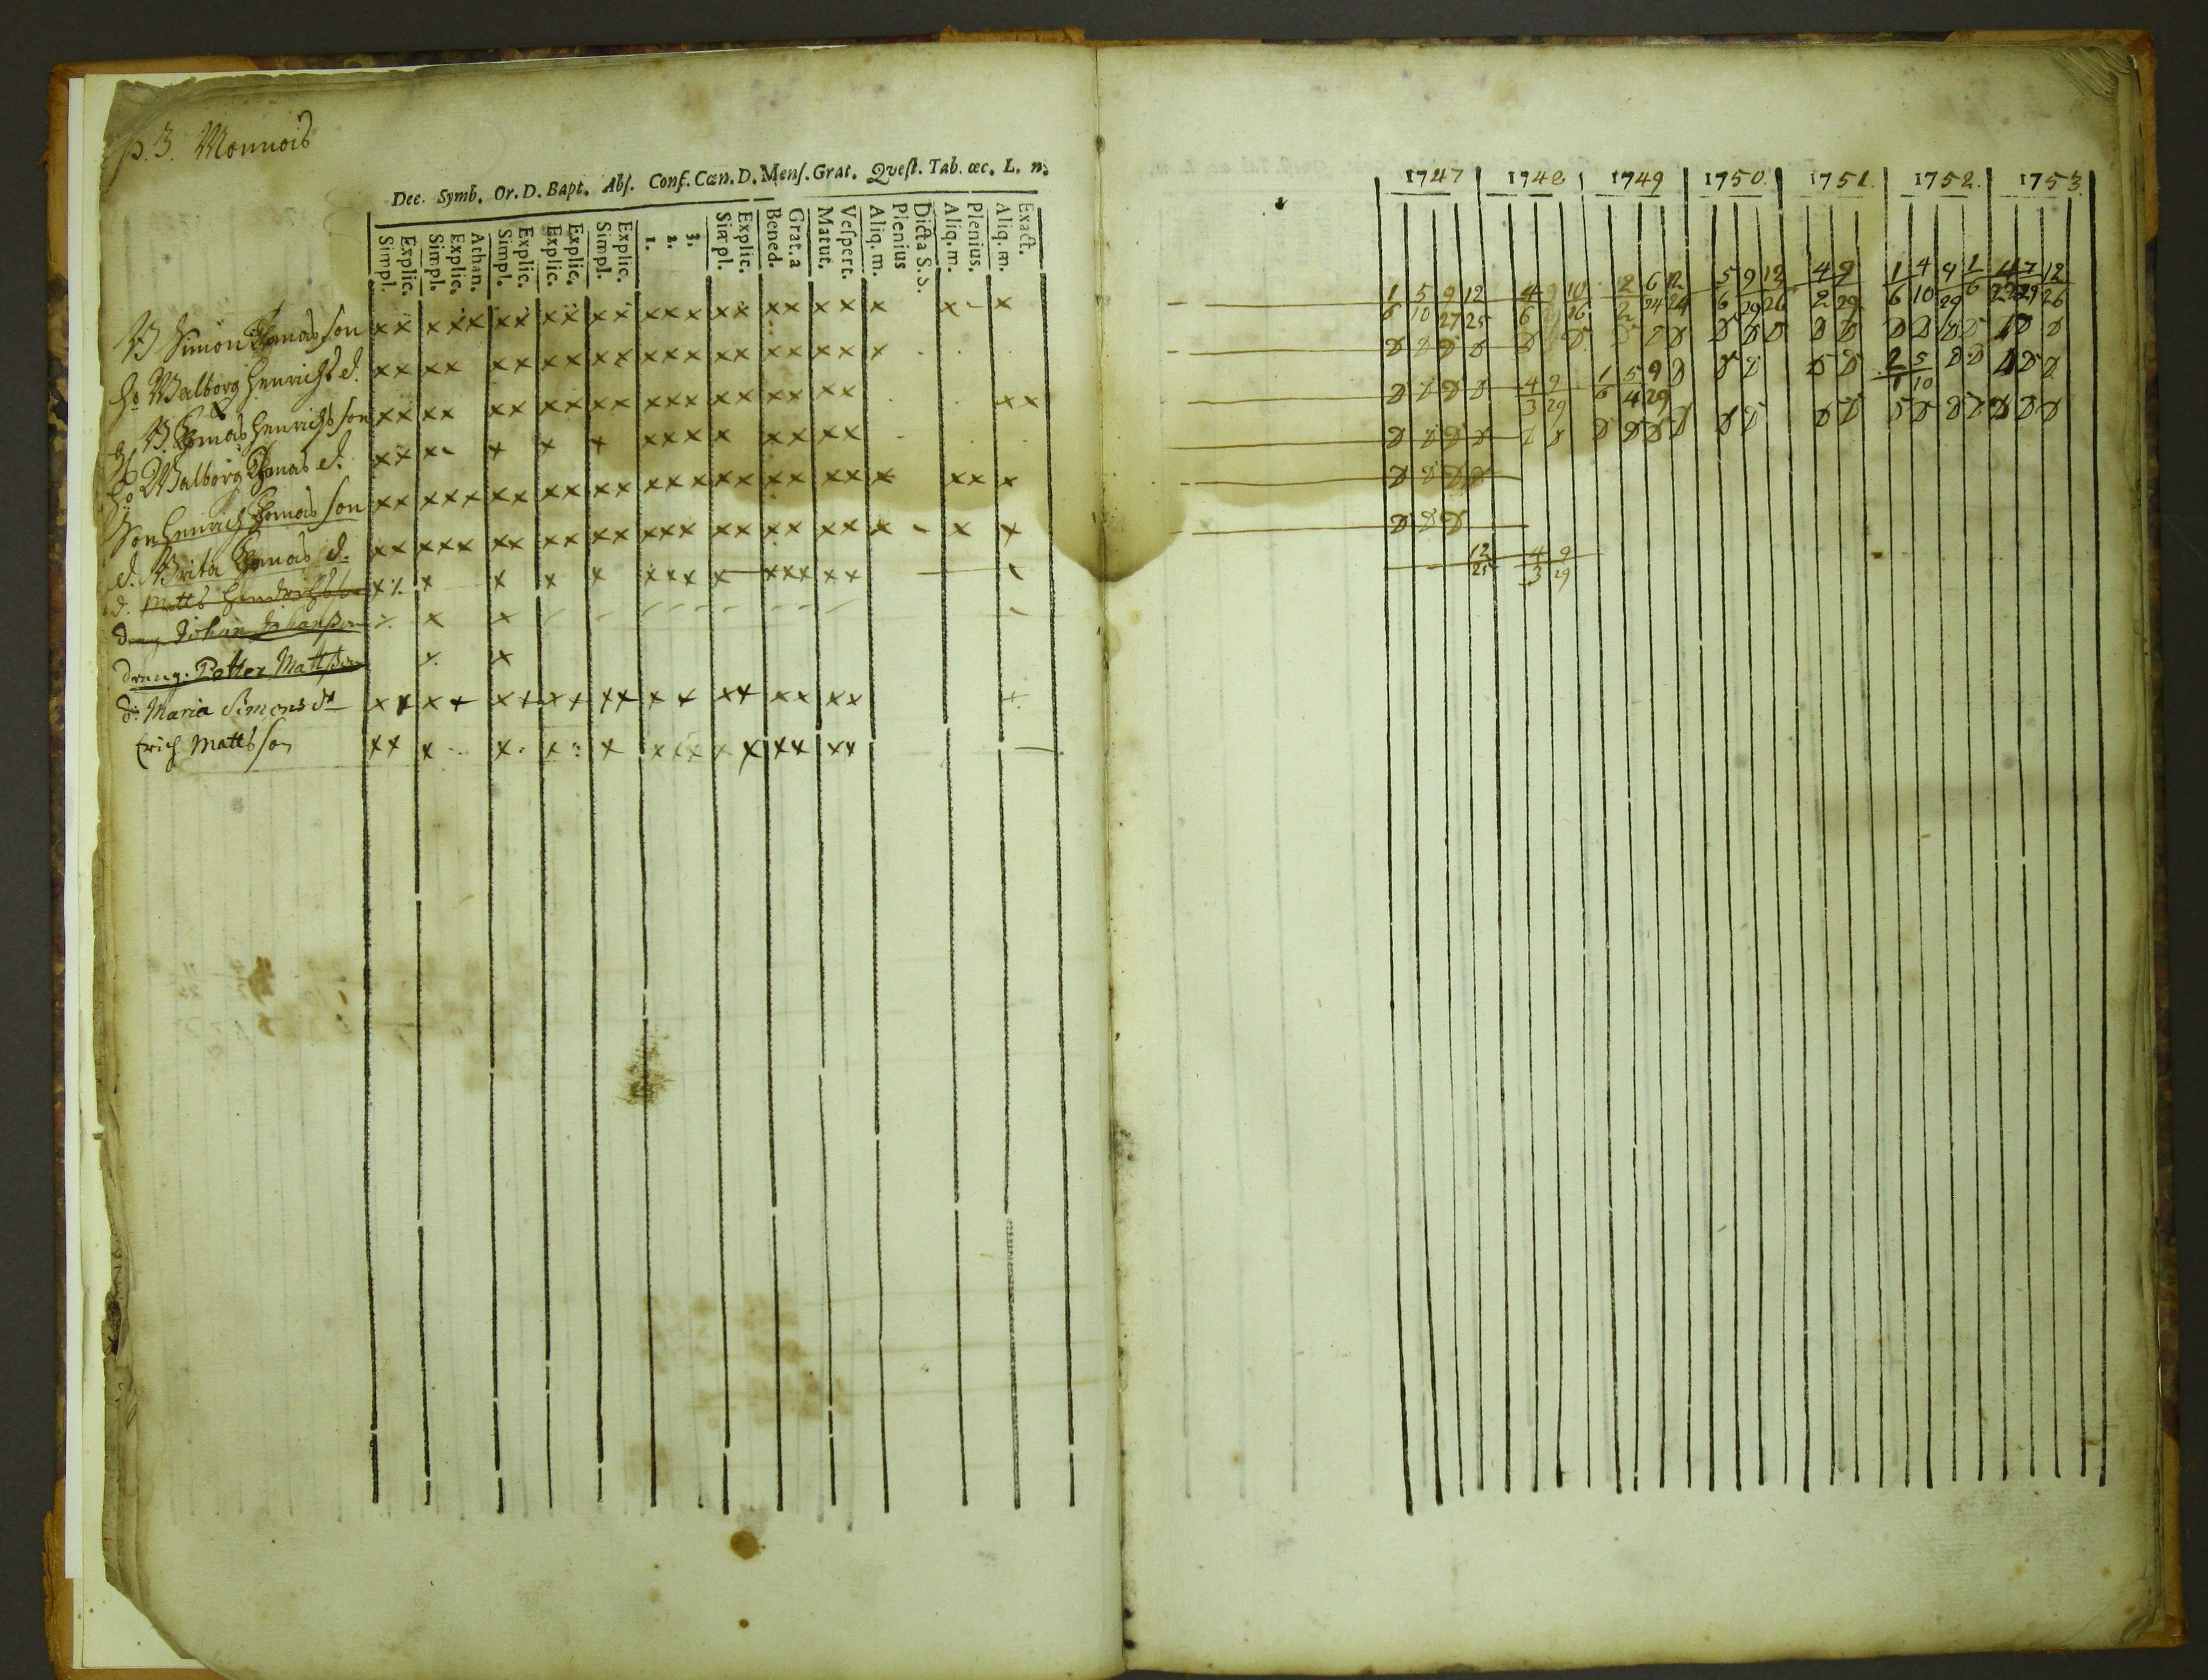 p. 3. Monnois
Dec. Symb. Or. D. Bapt. Abs. Conf. Cœn. D. Mens. Grat. Qvest. Tab. œc. L. n.
Simpl. Explic. Simpl. Explic. Athan. Simpl. Explic. Explic. Explic. Simpl. Explic. 1. 2. 3. Simpl. Explic. Bened. Grat. a Matut. Vespert. Aliq. m. Plenius Dicta S.S. Aliq. m. Plenius. Aliq. m. Exact.
B Simon Thomas son
Ho Walborg Henrichs d.
B. Thomas Henrichs son
Ho Walborg Thomas d.
Son Henrich Thomas son
d. Brita Thomas d.
d. Matts
dreng Johan Johansson
dreng. Petter Mattsson
d: Maria Simons dr
Erich Matts son
1747 1748 1749 1750. 1751. 1752. 1753.
1 5 9 12 4 9 10 2 6 12 5 9 12 4 9 1 4 9 1 4 7 12
6 10 27 25 6 29 16 2 24 24 6 29 26 2 29 6 10 29 6 22 29 26
D D D D D D D D D D D D D D D D D D D D D
D D D D 4 9 1 5 9 D D D D D 2 5 D D D D
3 29 6 4 29 1 10
D D D D D D D D D D D D D D D D D D D D D
D D D D
D D D
12 4 9
25 3 29